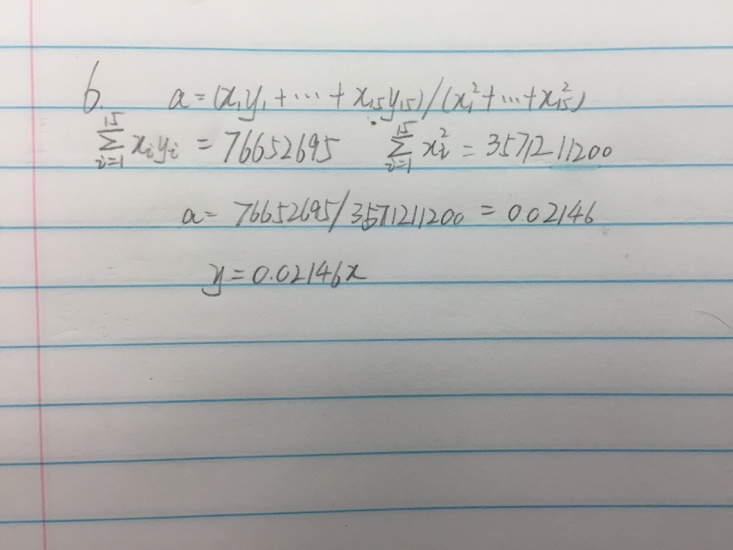 6. a = (x₁y₁ + ⋯ + x₁₅y₁₅)/(x₁² + ⋯ + x₁₅²)
∑_{i=1}^{15} xᵢyᵢ = 76652695 ∑_{i=1}^{15} xᵢ² = 3571211200
a = 76652695/3571211200 = 0.02146
y = 0.02146x